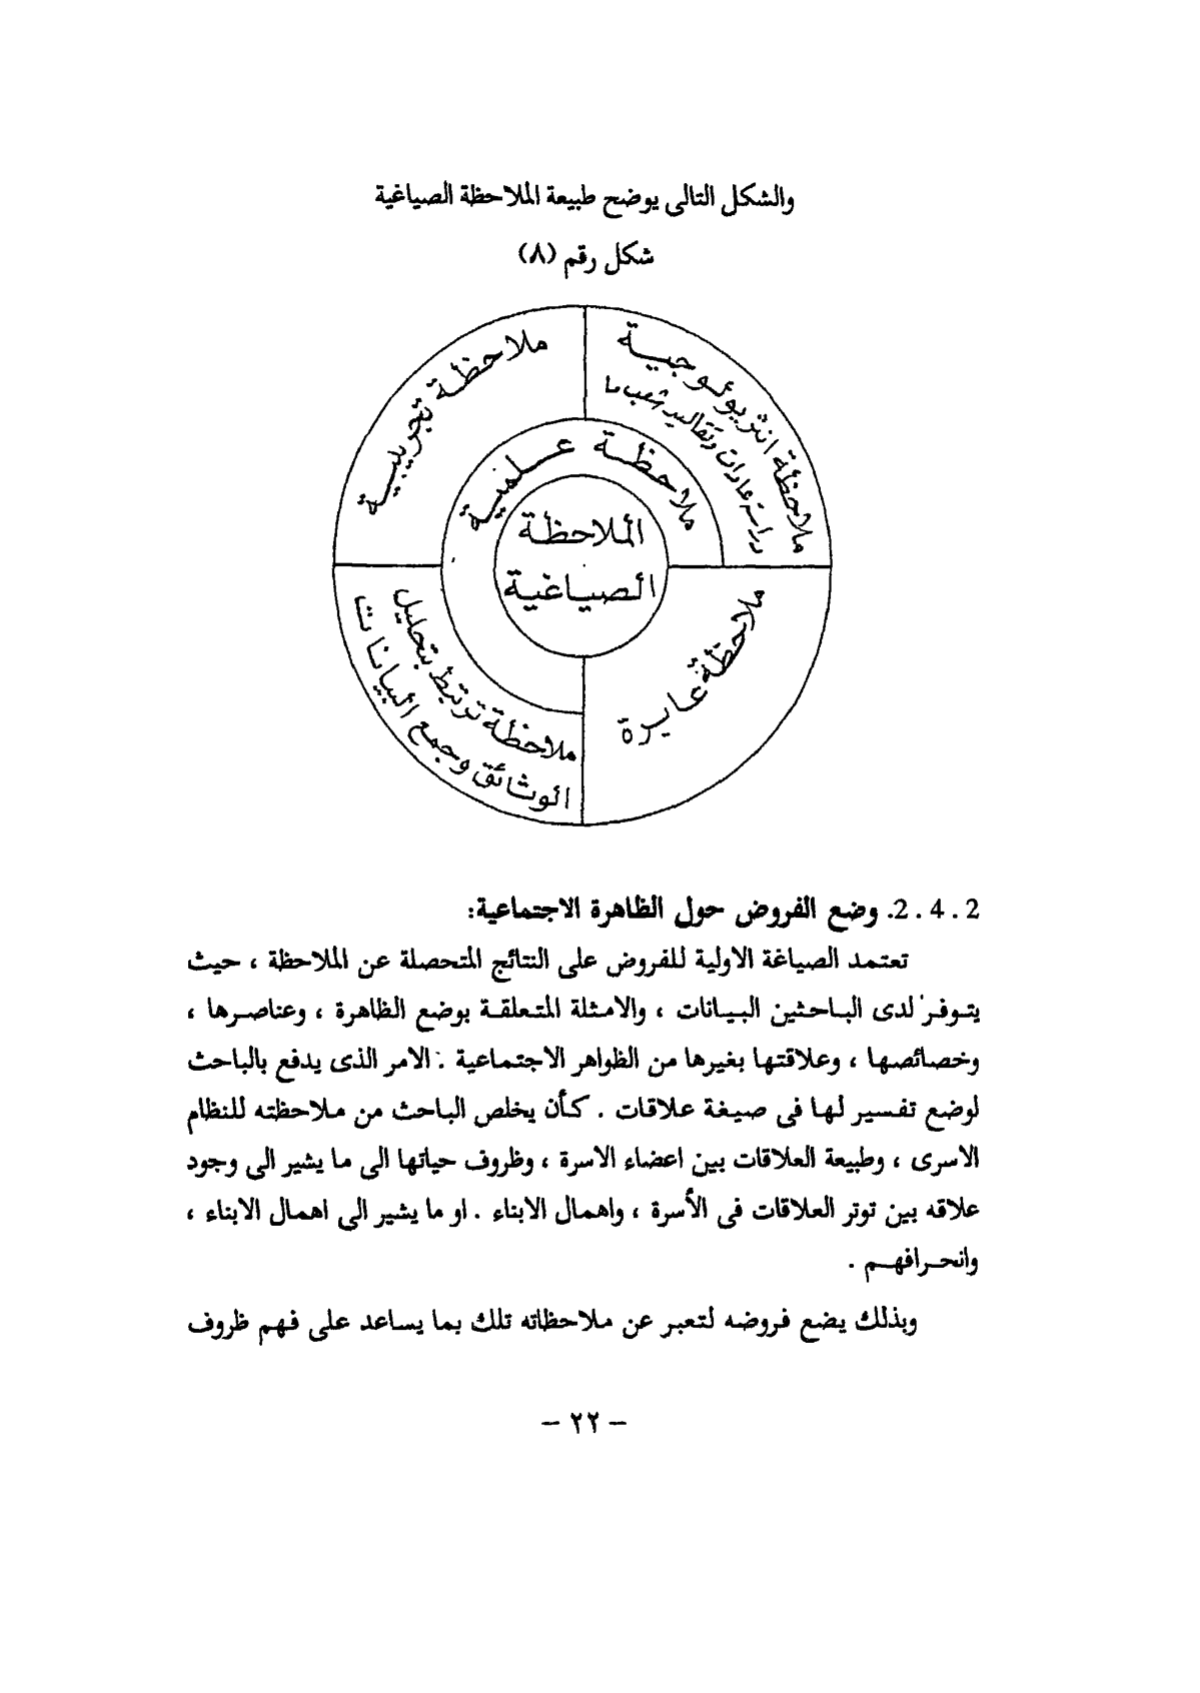 والشكل التالى يوضح طبيعة الملاحظة الصياغية
شكل رقم (٨)
ملاحظة انثربولوجية
دراسة عادات وتقاليد شعب ما
ملاحظة تجريبية
ملاحظة علمية
الملاحظة
الصياغية
ملاحظة عابرة
ملاحظة ترتبط بتحليل
الوثائق وجمع البيانات
2.4.2. وضع الفروض حول الظاهرة الاجتماعية:
تعتمد الصياغة الاولية للفروض على النتائج المتحصلة عن الملاحظة ، حيث
يتوفر لدى الباحثين البيانات ، والامثلة المتعلقة بوضع الظاهرة ، وعناصرها ،
وخصائصها ، وعلاقتها بغيرها من الظواهر الاجتماعية . الامر الذى يدفع بالباحث
لوضع تفسير لها فى صيغة علاقات . كأن يخلص الباحث من ملاحظته للنظام
الاسرى ، وطبيعة العلاقات بين اعضاء الاسرة ، وظروف حياتها الى ما يشير الى وجود
علاقه بين توتر العلاقات فى الأسرة ، واهمال الابناء . او ما يشير الى اهمال الابناء ،
وانحرافهم .
وبذلك يضع فروضه لتعبر عن ملاحظاته تلك بما يساعد على فهم ظروف
– ٢٢ –